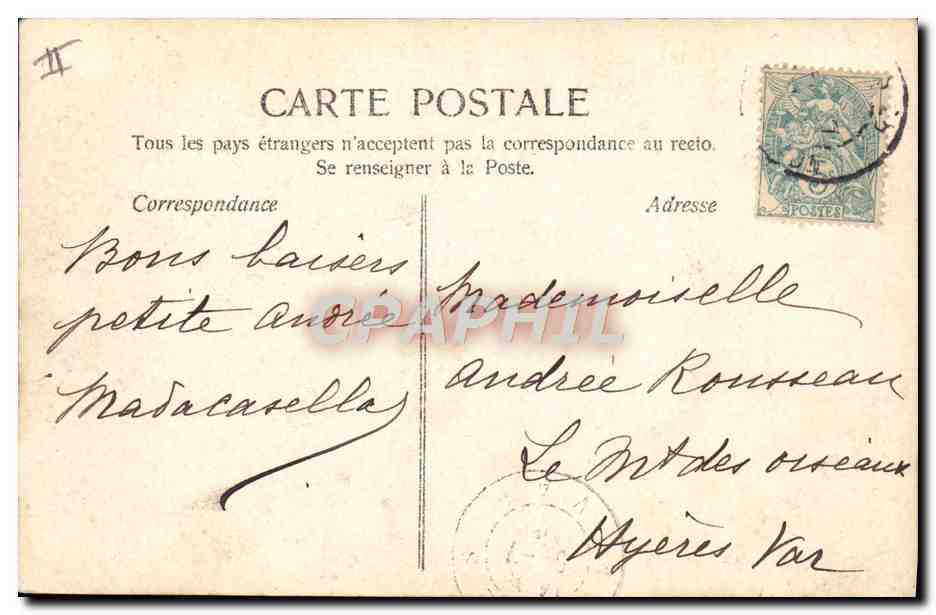 II
CARTE POSTALE
Tous les pays étrangers n'acceptent pas la correspondance au recto.
Se renseigner à la Poste.
Correspondance
Adresse
Bons baisers
petite Andrée
Madacasella
Mademoiselle
Andrée Rousseau
Le Mt des oiseaux
Hyères Var
5
POSTES
CPAPHIL